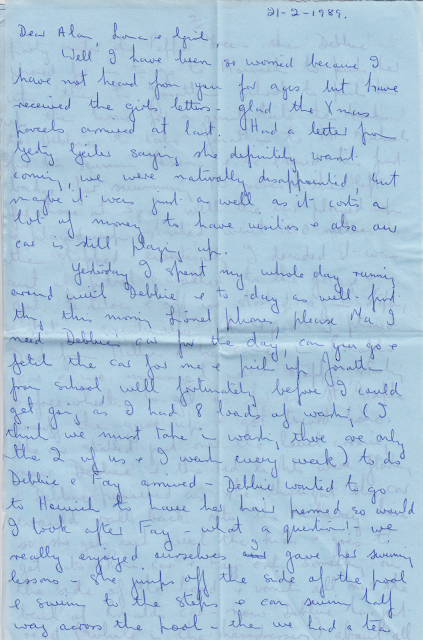 21-2-1989.
Dear Alan, Lorna &
Well I have been so worried because I
have not heard from you for ages but have
received the girls letters - glad the Xmas
parcels arrived at last. Had a letter from
saying she definitely wasnt
coming, we were naturally disappointed, but
maybe it was just a well as it costs a
lot of money to have visitors & also our
car is still playing up.
Yesterday I spent my whole day running
around with Debbie & to-day as well - first
thing this morning Lionel phones, please Ma I
need Debbie's car for the day, can you go &
fetch the car for me & pick up
from school, well fortunately before I could
get going as I had 8 loads of washing (I
think we must take in washing there are only
the 2 of us & I wash every week) to do
Debbie & Fay arrived - Debbie wanted to go
to to have her hair permed so would
I look after Fay - what a question! - we
really enjoyed ourselves I gave her swimming
lessons - she jumps off the side of the pool
& swims to the steps & can swim half
way across the pool - the we had a tea